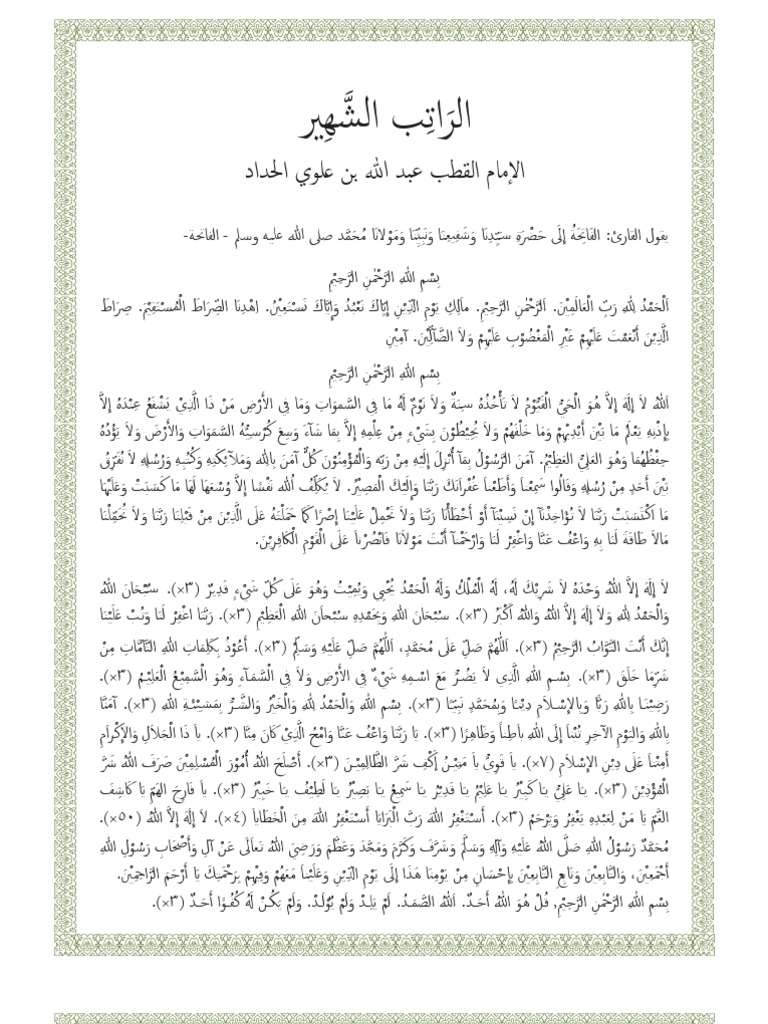 الرَاتِب الشَّهِير
الإمام القطب عبد الله بن علوي الحداد
يقول القارئ: الفَاتِحَةُ إِلَى حَضْرَةِ سَيِّدِنَا وَشَفِيعِنَا وَنَبِيِّنَا وَمَوْلانَا مُحَمَّد صلى الله عليه وسلم - الفاتحة-
بِسْمِ اللهِ الرَّحْمٰنِ الرَّحِيْمِ
اَلْحَمْدُ لِلّهِ رَبِّ الْعَالَمِيْنَ. اَلرَّحْمٰنِ الرَّحِيْمِ. ماَلِكِ يَوْمِ الدِّيْنِ إِيَّاكَ نَعْبُدُ وَإِيَّاكَ نَسْتَعِيْنُ. اِهْدِنَا الصِّرَاطَ الْمُسْتَقِيْمَ. صِرَاطَ
الَّذِيْنَ أَنْعَمْتَ عَلَيْهِمْ غَيْرِ الْمَغْضُوْبِ عَلَيْهِمْ وَلاَ الضَّآلِّيْنَ. آمِيْنِ
بِسْمِ اللهِ الرَّحْمٰنِ الرَّحِيْمِ
اَللهُ لاَ إِلَهَ إِلاَّ هُوَ الْحَيُّ الْقَيُّوْمُ لاَ تَأْخُذُهُ سِنَةٌ وَلاَ نَوْمٌ لَهُ مَا فِي السَّموَاتِ وَمَا فِي الأَرْضِ مَنْ ذَا الَّذِيْ يَشْفَعُ عِنْدَهُ إِلاَّ
بِإِذْنِهِ يَعْلَمُ مَا بَيْنَ أَيْدِيْهِمْ وَمَا خَلْفَهُمْ وَلاَ يُحِيْطُوْنَ بِشَيْءٍ مِنْ عِلْمِهِ إِلاَّ بِمَا شَآءَ وَسِعَ كُرْسِيُّهُ السَّموَاتِ وَالأَرْضَ وَلاَ يَؤُدُهُ
حِفْظُهُمَا وَهُوَ العَلِيُّ العَظِيْمُ. آمَنَ الرَّسُوْلُ بِمَآ أُنْزِلَ إِلَيْهِ مِنْ رَبِّهِ وَالْمُؤْمِنُوْنَ كُلٌّ آمَنَ بِاللهِ وَمَلآئِكَتِهِ وَكُتُبِهِ وَرُسُلِهِ لاَ نُفَرِّقُ
بَيْنَ أَحَدٍ مِنْ رُسُلِهِ وَقَالُوا سَمِعْنَا وَأَطَعْنَا غُفْرَانَكَ رَبَّنَا وَإِلَيْكَ الْمَصِيْرُ. لاَ يُكَلِّفُ اللهُ نَفْسًا إِلاَّ وُسْعَهَا لَهَا مَا كَسَبَتْ وَعَلَيْهَا
مَا اكْتَسَبَتْ رَبَّنَا لاَ تُؤَاخِذْنَآ إِنْ نَسِيْنَآ أَوْ أَخْطَأْنَا رَبَّنَا وَلاَ تَحْمِلْ عَلَيْنَآ إِصْرًا كَمَا حَمَلْتَهُ عَلَى الَّذِيْنَ مِنْ قَبْلِنَا رَبَّنَا وَلاَ تُحَمِّلْنَا
مَالاَ طَاقَةَ لَنَا بِهِ وَاعْفُ عَنَّا وَاغْفِرْ لَنَا وَارْحَمْنَآ أَنْتَ مَوْلاَنَا فَانْصُرْنَا عَلَى الْقَوْمِ الْكَافِرِيْنَ.
لاَ إِلَهَ إِلاَّ اللهُ وَحْدَهُ لاَ شَرِيْكَ لَهُ، لَهُ الْمُلْكُ وَلَهُ الْحَمْدُ يُحْيِيْ وَيُمِيْتُ وَهُوَ عَلَى كُلِّ شَيْءٍ قَدِيْرٌ (٣×). سُبْحَانَ اللهِ
وَالْحَمْدُ لِلّهِ وَلاَ إِلَهَ إِلاَّ اللهُ وَاللهُ أَكْبَرُ (٣×). سُبْحَانَ اللهِ وَبِحَمْدِهِ سُبْحَانَ اللهِ الْعَظِيْمِ (٣×). رَبَّنَا اغْفِرْ لَنَا وَتُبْ عَلَيْنَا
إِنَّكَ أَنْتَ التَّوَّابُ الرَّحِيْمُ (٣×). اَللَّهُمَّ صَلِّ عَلَى مُحَمَّدٍ، اَللَّهُمَّ صَلِّ عَلَيْهِ وَسَلِّمْ (٣×). أَعُوْذُ بِكَلِمَاتِ اللهِ التَّآمَّاتِ مِنْ
شَرِّمَا خَلَقَ (٣×). بِسْمِ اللهِ الَّذِي لاَ يَضُرُّ مَعَ اسْمِهِ شَيْءٌ فِي الأَرْضِ وَلاَ فِي السَّمَآءِ وَهُوَ السَّمِيْعُ الْعَلِيْمُ (٣×).
رَضِيْنَا بِاللهِ رَبًّا وَبِالإِسْلاَمِ دِيْنًا وَبِمُحَمَّدٍ نَبِيًّا (٣×). بِسْمِ اللهِ وَالْحَمْدُ لِلّهِ وَالْخَيْرُ وَالشَّرُّ بِمَشِيْئَةِ اللهِ (٣×). آمَنَّا
بِاللهِ وَاليَوْمِ الآخِرِ تُبْنَا إِلَى اللهِ بَاطِناً وَظَاهِرًا (٣×). يَا رَبَّنَا وَاعْفُ عَنَّا وَامْحُ الَّذِيْ كَانَ مِنَّا (٣×). يا ذَا الْجَلاَلِ وَالإِكْرَامِ
أَمِتْنَا عَلَى دِيْنِ الإِسْلاَمِ (٧×). ياَ قَوِيُّ ياَ مَتِيْنُ إِكْفِ شَرَّ الظَّالِمِيْنَ (٣×). أَصْلَحَ اللهُ أُمُوْرَ الْمُسْلِمِيْنَ صَرَفَ اللهُ شَرَّ
الْمُؤْذِيْنَ (٣×). يـَا عَلِيُّ يـَا كَبِيْرُ يـَا عَلِيْمُ يـَا قَدِيْرُ يـَا سَمِيعُ يـَا بَصِيْرُ يـَا لَطِيْفُ يـَا خَبِيْرُ (٣×). ياَ فَارِجَ الهَمِّ يَا كَاشِفَ
الغَمِّ يَا مَنْ لِعَبْدِهِ يَغْفِرُ وَيَرْحَمُ (٣×). أَسْتَغْفِرُ اللهَ رَبَّ الْبَرَايَا أَسْتَغْفِرُ اللهَ مِنَ الْخَطَاياَ (٤×). لاَ إِلَهَ إِلاَّ اللهُ (٥٠×).
مُحَمَّدٌ رَسُوْلُ اللهِ صَلَّى اللهُ عَلَيْهِ وَآلِهِ وَسَلَّمَ وَشَرَّفَ وَكَرَّمَ وَمَجَّدَ وَعَظَّمَ وَرَضِيَ اللهُ تَعَالَى عَنْ آلِ وَأَصْحَابِ رَسُوْلِ اللهِ
أَجْمَعِيْنَ، وَالتَّابِعِيْنَ وَتَابِعِ التَّابِعِيْنَ بِإِحْسَانٍ مِنْ يَوْمِنَا هَذَا إِلَى يَوْمِ الدِّيْنِ وَعَلَيْنَا مَعَهُمْ وَفِيْهِمْ بِرَحْمَتِكَ يَا أَرْحَمَ الرَّاحِمِيْنَ.
بِسْمِ اللهِ الرَّحْمٰنِ الرَّحِيْمِ, قُلْ هُوَ اللهُ أَحَدٌ. اَللهُ الصَّمَدُ. لَمْ يَلِدْ وَلَمْ يُوْلَدْ. وَلَمْ يَكُنْ لَهُ كُفُوًا أَحَدٌ (٣×).